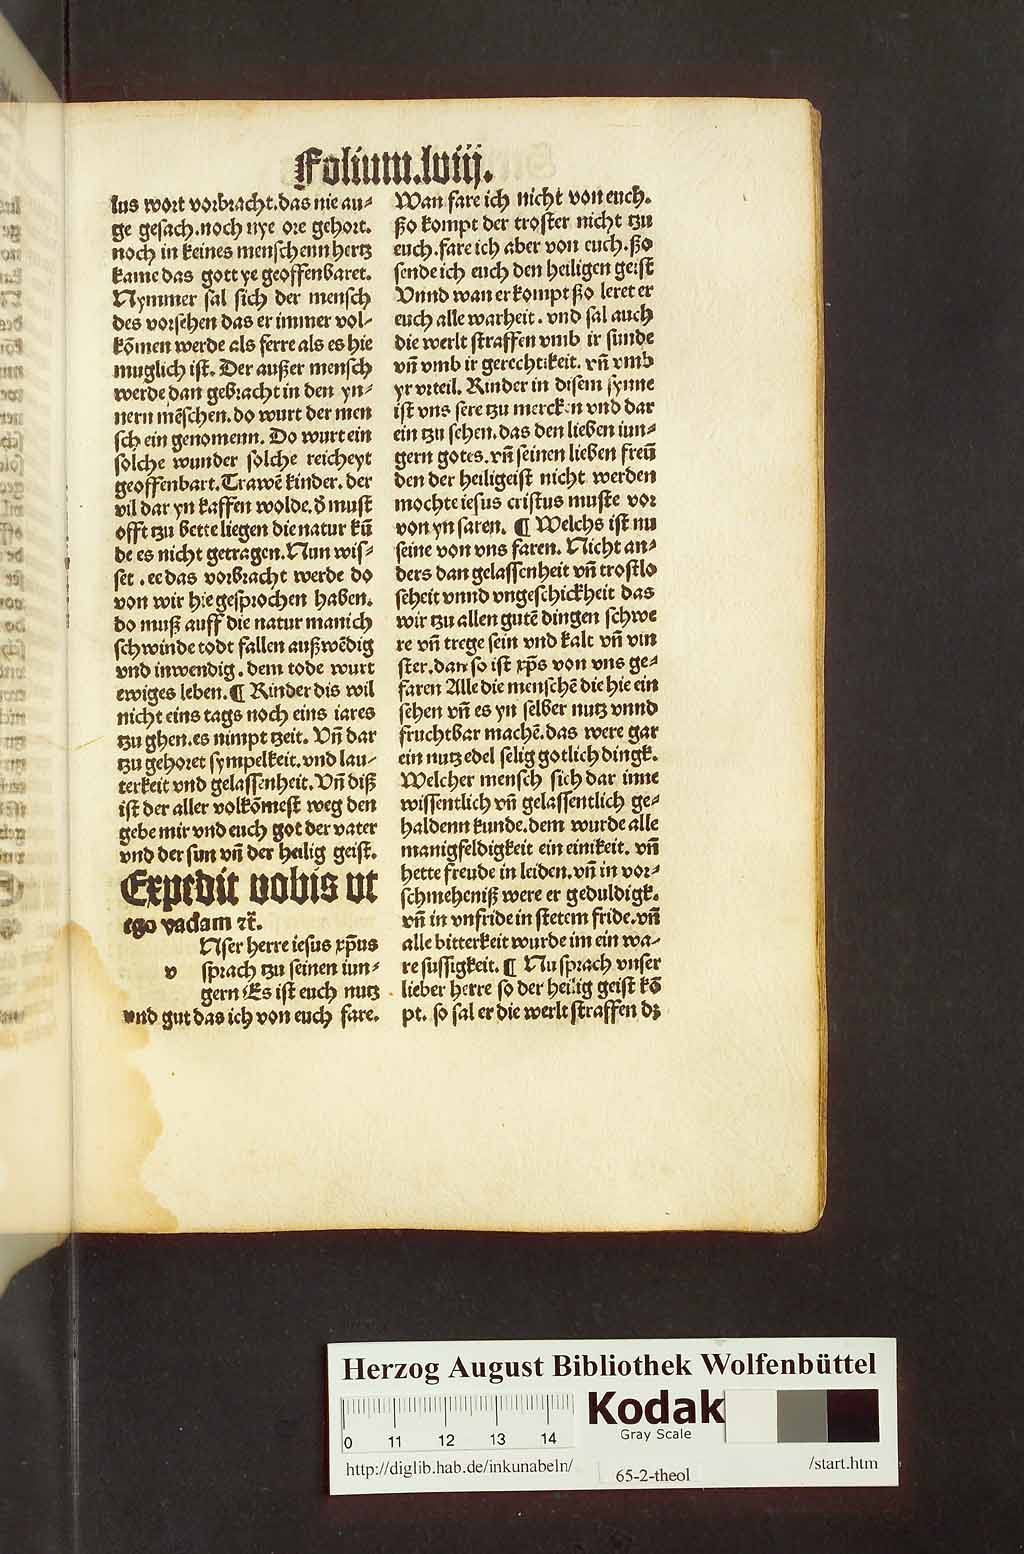 Folium.lviij.
lus wort vorbracht.das nie au⸗
ge gesach.noch nye ore gehort.
noch in keines menschenn hertz
kame das gott ye geoffenbaret.
Nymmer sal sich der mensch
des vorsehen das er immer vol⸗
kōmen werde als ferre als es hie
muglich ist. Der außer mensch
werde dan gebracht in den yn⸗
nern mēschen.do wurt der men
sch ein genomenn. Do wurt ein
solche wunder solche reicheyt
geoffenbart. Trawē kinder. der
vil dar yn kaffen wolde.d̕ must
offt tzu bette liegen die natur kū
de es nicht getragen.Nun wis⸗
set .ee das vorbracht werde do
von wir hie gesprochen haben.
do muß auff die natur manich
schwinde todt fallen außwēdig
vnd inwendig. dem tode wurt
ewiges leben.¶ Kinder dis wil
nicht eins tags noch eins iares
tzu ghen.es nimpt tzeit. Vn̄ dar
tzu gehoret sympelkeit.vnd lau⸗
terkeit vnd gelassenheit. Vn̄ diß
ist der aller volkōmest weg den
gebe mir vnd euch got der vater
vnd der sun vn̄ der heilig geist.
Expedit vobis vt
ego vadam ⁊c̄.
Nser herre iesus xp̄us
v sprach tzu seinen iun⸗
gern Es ist euch nutz
vnd gut das ich von euch fare.
Wan fare ich nicht von euch.
ßo kompt der troster nicht tzu
euch.fare ich aber von euch.ßo
sende ich euch den heiligen geist
Vnnd wan er kompt ßo leret er
euch alle warheit. vnd sal auch
die werlt straffen vmb ir sunde
vn̄ vmb ir gerechtikeit. vn̄ vmb
yr vrteil. Kinder in disem synne
ist vns sere tzu mercken vnd dar
ein tzu sehen.das den lieben iun⸗
gern gotes.vn̄ seinen lieben freū
den der heiligeist nicht werden
mochte iesus cristus muste vor
von yn faren. ¶ Welchs ist nu
seine von vns faren. Nicht an⸗
ders dan gelassenheit vn̄ trostlo
seheit vnnd vngeschickheit das
wir tzu allen gutē dingen schwe
re vn̄ trege sein vnd kalt vn̄ vin
ster.dan so ist xp̄s von vns ge⸗
faren Alle die menschē die hie ein
sehen vn̄ es yn selber nutz vnnd
fruchtbar machē.das were gar
ein nutz edel selig gotlich dingk.
Welcher mensch sich dar inne
wissentlich vn̄ gelassentlich ge⸗
haldenn kunde.dem wurde alle
manigfeldigkeit ein einikeit. vn̄
hette freude in leiden.vn̄ in vor⸗
schmeheniß were er geduldigk.
vn̄ in vnfride in stetem fride.vn̄
alle bitterkeit wurde im ein wa⸗
re sussigkeit. ¶ Nu sprach vnser
lieber herre so der heilig geist kō
pt. so sal er die werlt straffen dz
Herzog August Bibliothek Wolfenbüttel
Kodak
Gray Scale
0 11 12 13 14
http://diglib.hab.de/inkunabeln/
65-2-theol
/start.htm